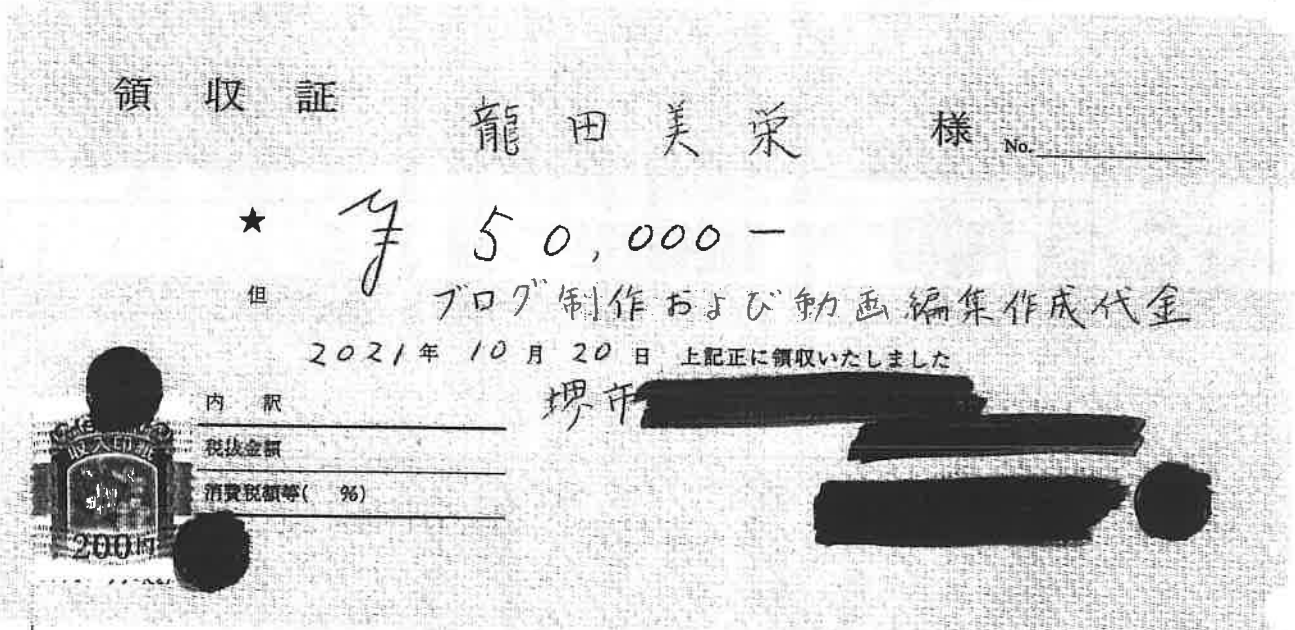 領収証 龍田美栄 様 No.
★ ¥ 50,000-
但 ブログ制作および動画編集作成代金
2021年 10月 20日 上記正に領収いたしました
堺市
内訳
税抜金額
消費税額等( %)
収入印紙
200円